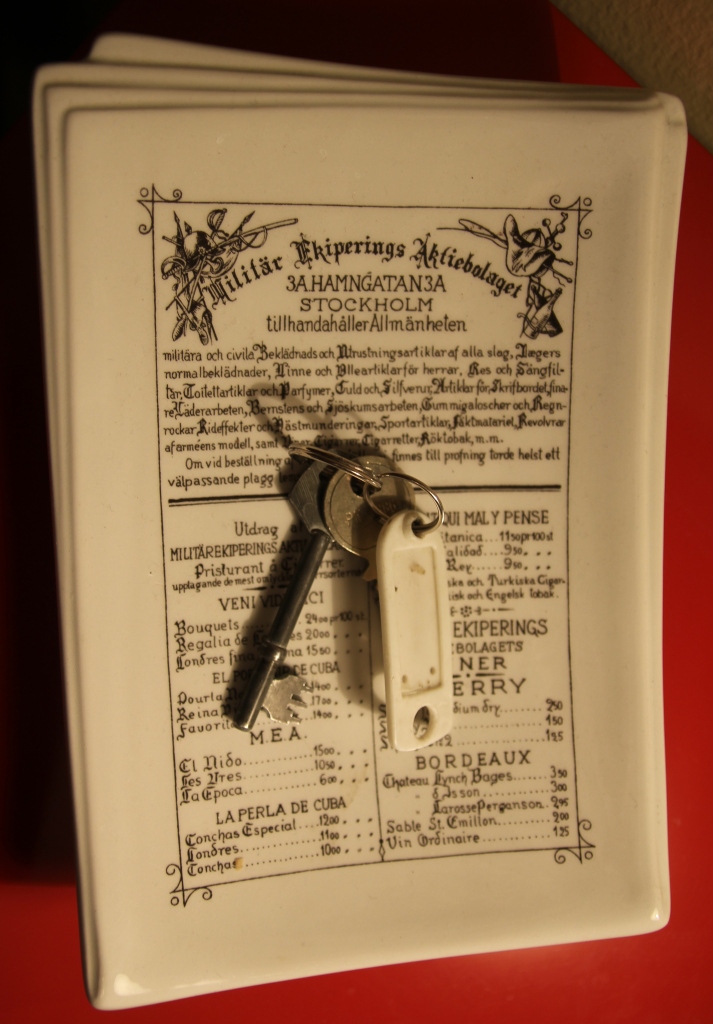 Militär Ekiperings Aktiebolaget
3A.HAMNGATAN3A
STOCKHOLM
tillhandahåller Allmänheten
militära och civila Beklädnads och Utrustningsartiklar af alla slag, Jægers
normalbeklädnader, Linne och Ylleartiklar för herrar, Res och Sängfil-
tar, Toilettartiklar och Parfymer, Guld och Silfverur, Artiklar för Skrifbordet, fina-
re Läderarbeten, Bernstens och Sjöskumsarbeten, Gummigaloscher och Regn-
rockar, Rideffekter och Hästmunderingar, Sportartiklar, Fäktmateriel, Revolvrar
af arméens modell, samt Cigarretter, Röktobak, m.m.
Om vid beställning finnes till profning torde helst ett
välpassande plagg
Utdrag
MILITÄREKIPERINGS
Priskurant å
upplagande de mest
VENI VIDI VICI
Bouquets 2400 pr 100 st
Regalia de 2000
Londres fina 1550
EL DE CUBA
Pour la 1400
Reina 1700
Favorit 1400
M.E.A.
El Nido 1500
Les Yres 1050
La Epoca 600
LA PERLA DE CUBA
Conchas Especial 1200
Londres 1100
Conchas 1000
QUI MAL Y PENSE
tanica 1150 pr 100 st
alidad 950
Rex 950
ska och Turkiska Cigar-
isk och Engelsk tobak.
EKIPERINGS
BOLAGETS
NER
ERRY
dium dry 250
150
125
BORDEAUX
Chateau Lynch Bages 350
" d Isson 300
" Larosse Perganson 295
Sable St. Emillon 200
Vin Ordinaire 125